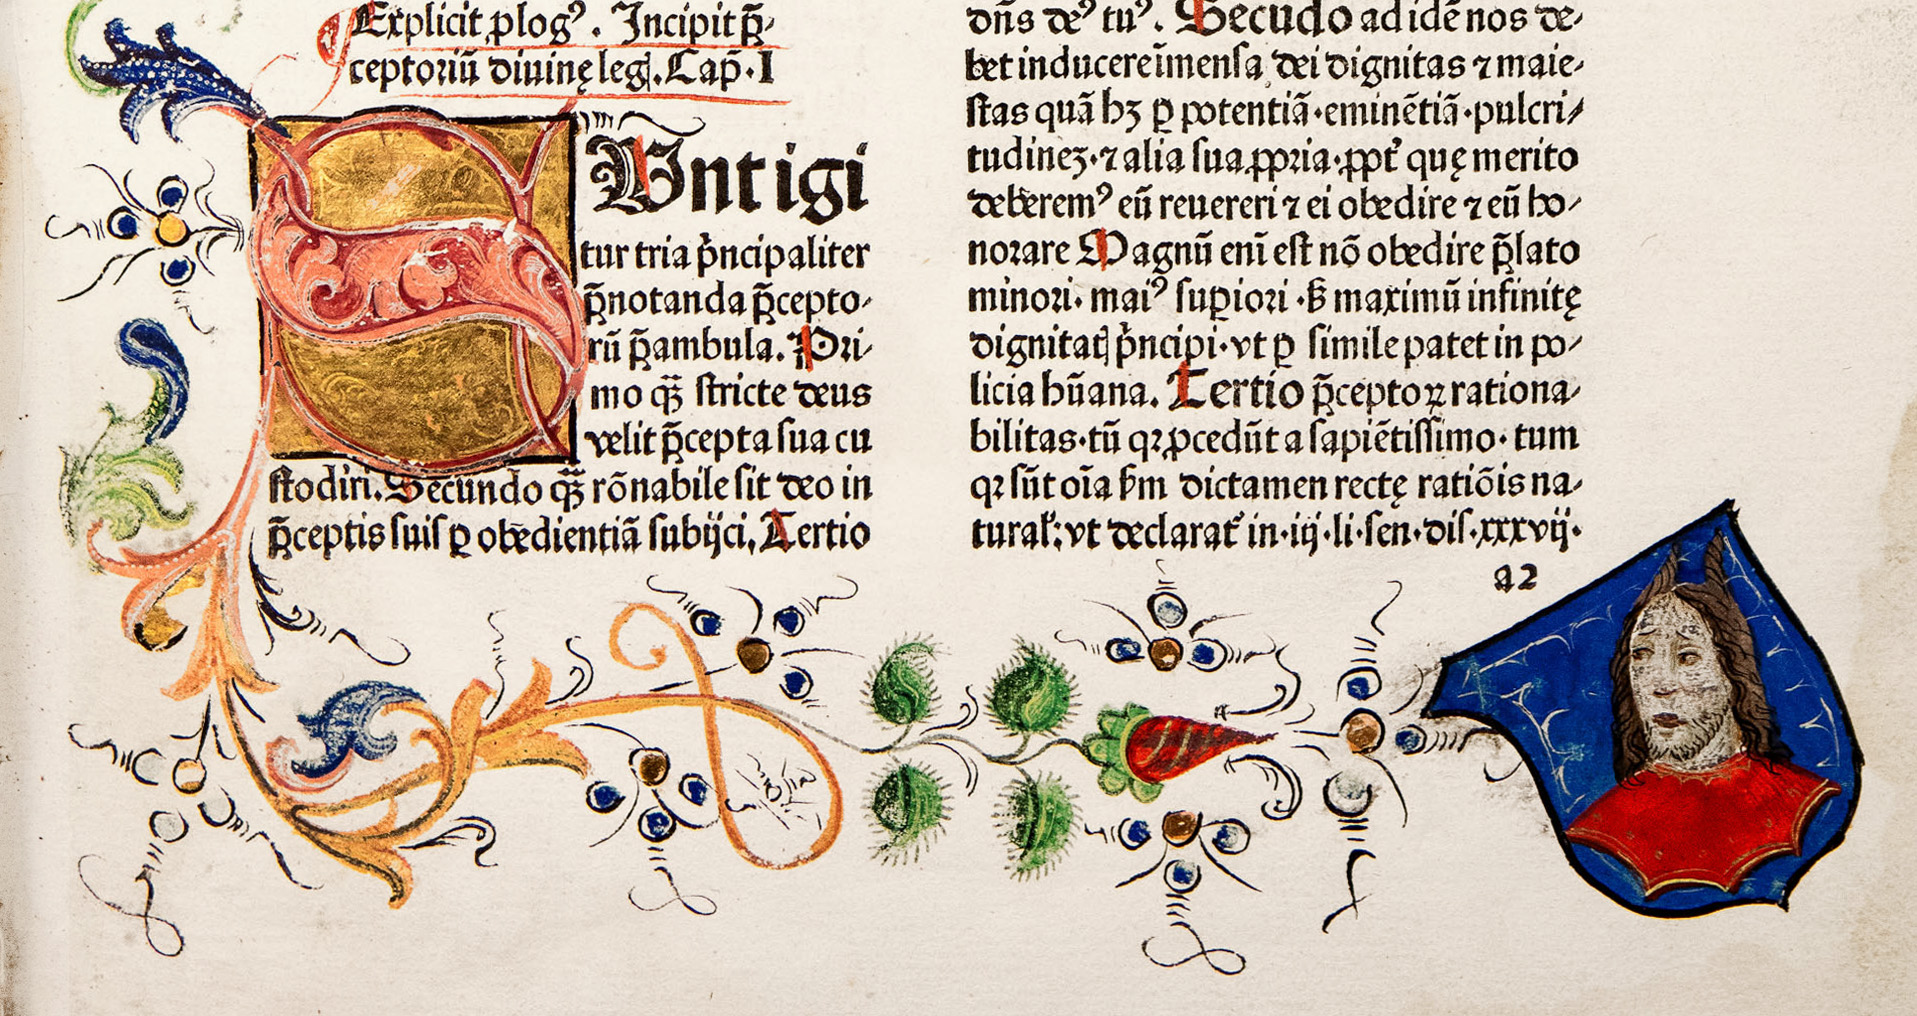 Explicit ꝓlogꝰ. Incipit p̄-
ceptoriū diuinę legꝭ. Cap̄. I
Untigi
tur tria pͥncipaliter
p̄notanda p̄cepto-
rū p̄ambula. Pri-
mo qͣꝫ stricte deus
velit p̄cepta sua cu
stodiri. Secundo qͣꝫ rōnabile sit deo in
p̄ceptis suis ꝑ obedientiā subijci. Tertio
dn̄s deꝰ tuꝰ. Secūdo ad idē nos de-
bet inducere īmensa dei dignitas ⁊ maie-
stas quā hꝫ ꝑ potentiā·eminētiā·pulcri-
tudineꝫ·⁊ alia sua ꝓpria·ꝓpt̉ quę merito
deberemꝰ eū reuereri ⁊ ei obedire ⁊ eū ho-
norare Magnū eni̅ est nō obedire p̄lato
minori· maiꝰ suꝑiori ·ß maximū infinitę
dignitatꝭ pͥncipi·vt ꝑ simile patet in po-
licia hūana. Tertio p̄ceptoꝝ rationa-
bilitas·tū qꝛ ꝓcedūt a sapiētissimo· tum
qꝛ sūt oīa ẜm dictamen rectę ratiōis na-
turał: vt declarat̉ in·iij·li·sen·dis·xxxvij·
a2